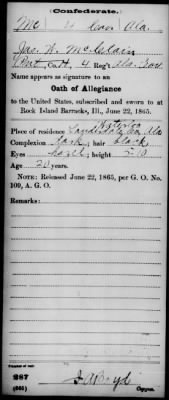 Confederate.
Mc 4 Cav. Ala.
Jas. W. McClain
Pvt, Co. H, 4 Reg't Ala. Cav.
Name appears as signature to an
Oath of Allegiance
to the United States, subscribed and sworn to at
Rock Island Barracks, Ill., June 22, 1865.
Place of residence Lauderdale Co, Ala
Complexion dark; hair black
Eyes hazel; height 5-10
Age 20 years.
NOTE: Released June 22, 1865, per G. O. No.
109, A. G. O.
Remarks:
Number of roll:
287
(655) J A Boyd
Copyist.